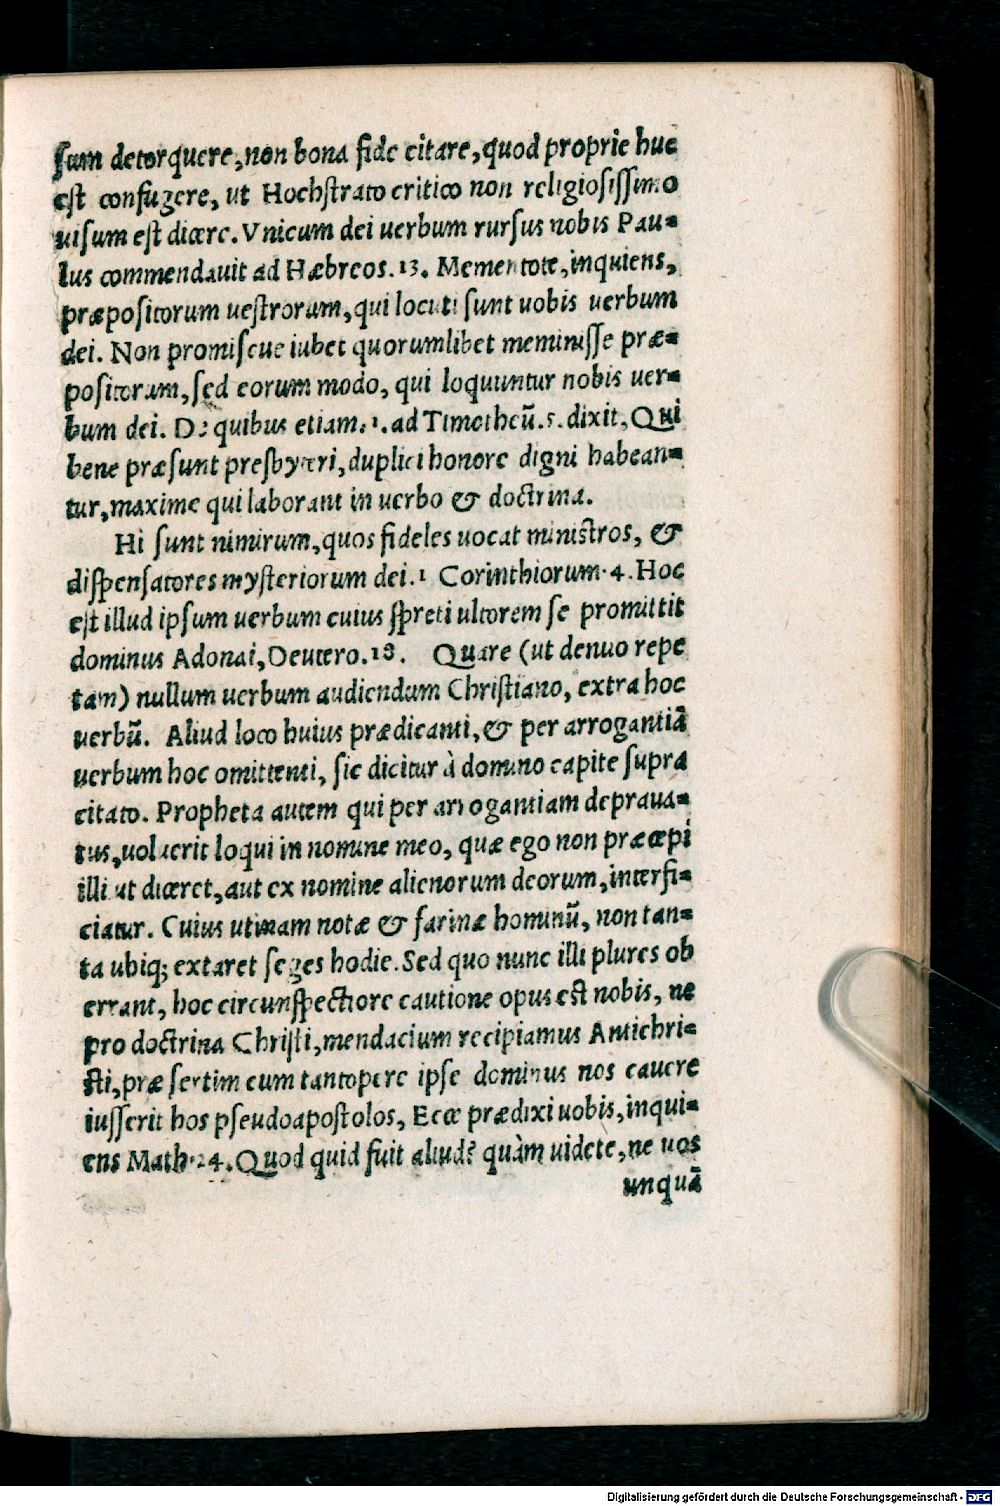 sum detorquere, non bona fide citare, quod proprie huc
est confugere, ut Hochstrato critico non religiosissimo
uisum est dicere. Vnicum dei uerbum rursus nobis Pau=
lus commendauit ad Hæbreos. 13. Mementote, inquiens,
præpositorum uestrorum, qui locuti sunt uobis uerbum
dei. Non promiscue iubet quorumlibet meminisse præ=
positorum, sed eorum modo, qui loquuntur nobis uer=
bum dei. De quibus etiam. 1. ad Timotheũ. 5. dixit, Qui
bene præsunt presbyteri, duplici honore digni habean=
tur, maxime qui laborant in uerbo & doctrina.
Hi sunt nimirum, quos fideles uocat ministros, &
dispensatores mysteriorum dei. 1 Corinthiorum. 4. Hoc
est illud ipsum uerbum cuius spreti ultorem se promittit
dominus Adonai, Deutero. 18. Quare (ut denuo repe
tam) nullum uerbum audiendum Christiano, extra hoc
uerbũ. Aliud loco huius prædicanti, & per arrogantiã
uerbum hoc omittenti, sic dicitur à domino capite supra
citato. Propheta autem qui per arrogantiam depraua=
tus, uoluerit loqui in nomine meo, quæ ego non præcepi
illi ut diceret, aut ex nomine alienorum deorum, interfi=
ciatur. Cuius utinam notæ & farinæ hominũ, non tan=
ta ubiq; extaret seges hodie. Sed quo nunc illi plures ob
errant, hoc circunspectiore cautione opus est nobis, ne
pro doctrina Christi, mendacium recipiamus Antichri=
sti, præsertim cum tantopere ipse dominus nos cauere
iusserit hos pseudoapostolos, Ecce prædixi uobis, inqui=
ens Math. 24. Quod quid fuit aliud quàm uidete, ne uos
unquã
Digitalisierung gefördert durch die Deutsche Forschungsgemeinschaft - DFG